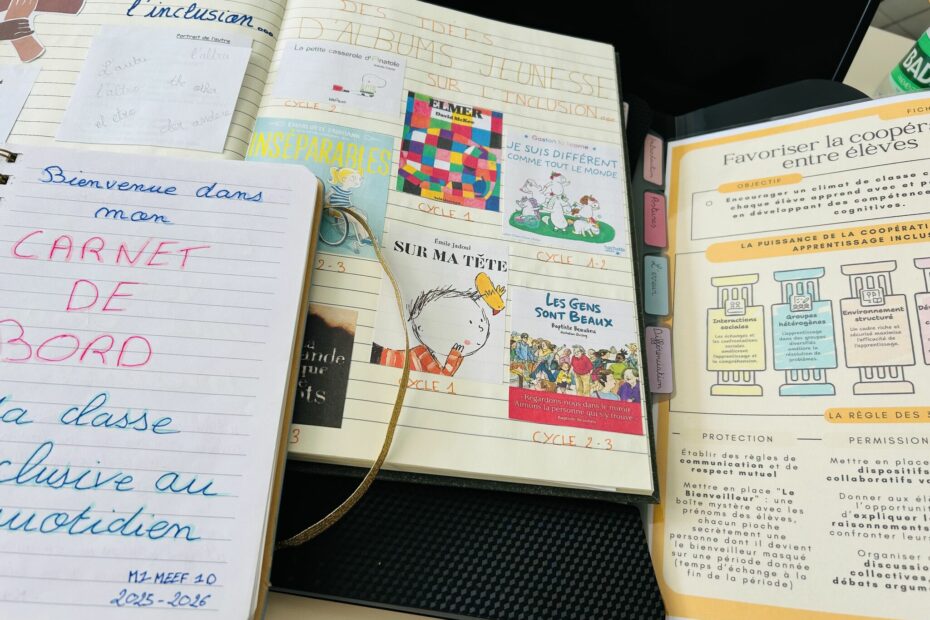 l'inclusion...
Portrait de l'autre
DES IDÉES
D'ALBUMS JEUNESSE
SUR L'INCLUSION...
La petite casserole d'Anatole
CYCLE 2
ELMER
David McKee
CYCLE 1
JE SUIS DIFFÉRENT
COMME TOUT LE MONDE
CYCLE 1-2
INSÉPARABLES
2-3
Émile Jadoul
SUR MA TÊTE
CYCLE 1
LES GENS
SONT BEAUX
Baptiste Beaulieu
Regardons-nous dans le miroir
Aimons la personne qui s'y trouve
CYCLE 2-3
3
Bienvenue dans
mon
CARNET
DE
BORD
la classe
clusive au
quotidien
M1-MEEF 10
2025-2026
Différenciation
BAD
FICH
Favoriser la coopéra
entre élèves
OBJECTIF
Encourager un climat de classe c
chaque élève apprend avec et p
en développant des compétence
cognitives.
LA PUISSANCE DE LA COOPÉRATI
APPRENTISSAGE INCLUS
Interactions
sociales
Les échanges et
les confrontations
sociales
améliorent
l'apprentissage et la
compréhension.
Groupes
hétérogènes
L'apprentissage
dans des groupes
diversifiés
améliore la
résolution de
problèmes.
Environnement
structuré
Un cadre riche et
sécurisé maximise
l'efficacité de
l'apprentissage.
LA RÈGLE DES
PROTECTION
Établir des règles de
communication et de
respect mutuel
Mettre en place "Le
Bienveilleur" : une
boîte mystère avec les
prénoms des élèves,
chacun pioche
secrètement une
personne dont il devient
le bienveilleur masqué
sur une période donnée
(temps d'échange à la
fin de la période)
PERMISSION
Mettre en place
dispositifs
collaboratifs
Donner aux élè
l'opportunit
d'expliquer l
raisonnements
confronter leurs
Organiser
discussion
collectives,
débats argum